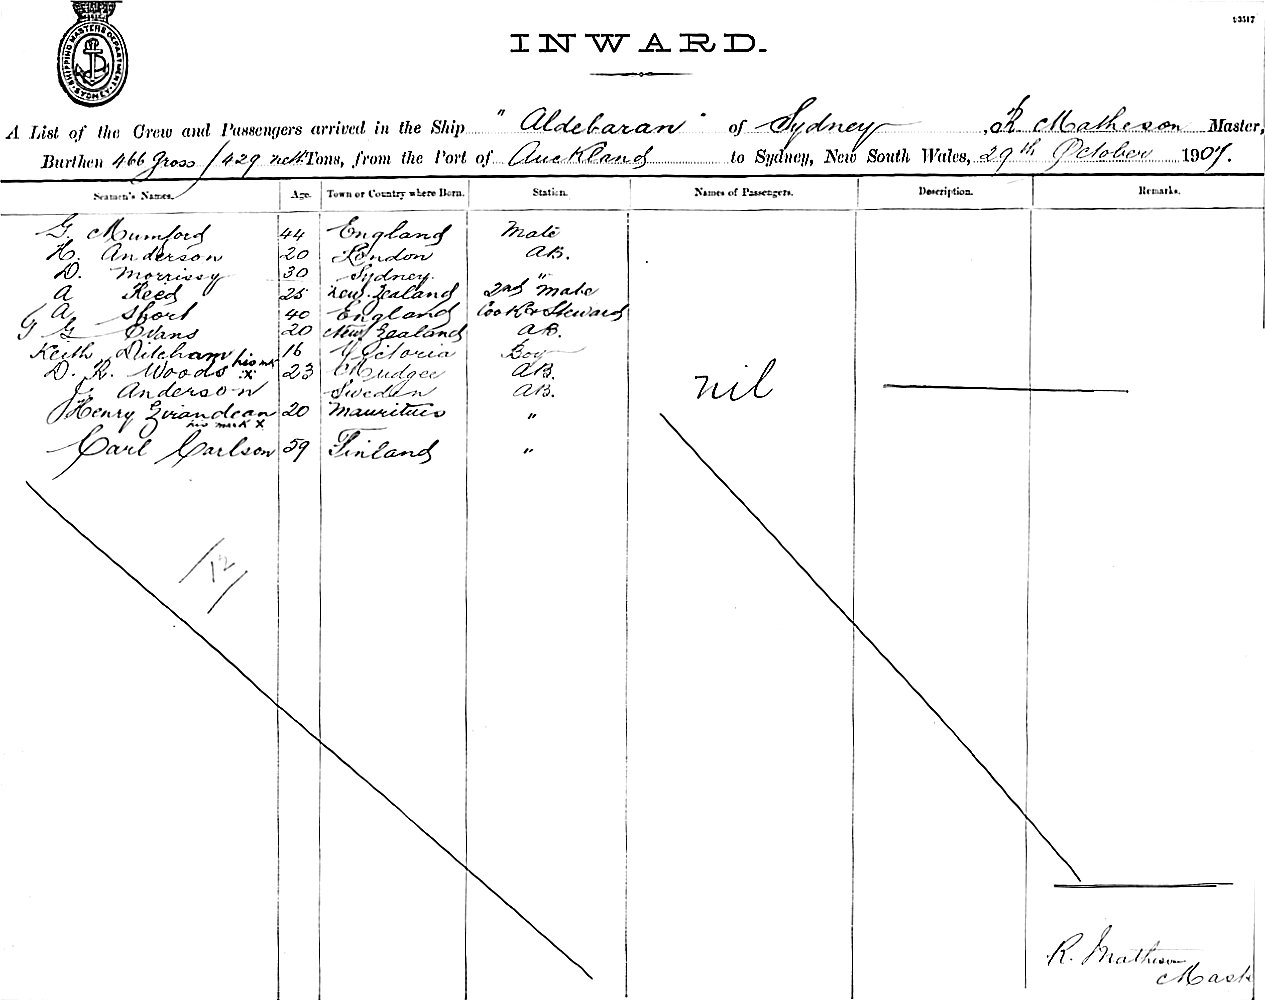 SHIPPING MASTERS DEPARTMENT SYDNEY
23517
INWARD.
A List of the Crew and Passengers arrived in the Ship "Aldebaran" of Sydney, R Matheson Master,
Burthen 466 Gross / 429 nett Tons, from the Port of Auckland to Sydney, New South Wales, 29th October 1907.
Seamen's Names. Age. Town or Country where Born. Station. Names of Passengers. Description. Remarks.
G. Mumford 44 England Mate
H. Anderson 20 London AB.
D. Morrissy 30 Sydney "
A Reed 25 New Zealand 2nd Mate
A Short 40 England Cook & Steward
G Evans 20 New Zealand AB.
Keith 16 Victoria Boy
D. R. Woods his mk x 23 Mudgee AB.
J. Anderson Sweden AB.
nil
Henry 20 Mauritius "
his mark x
Carl Carlson 59 Finland "
12
R. Matheson
Mast